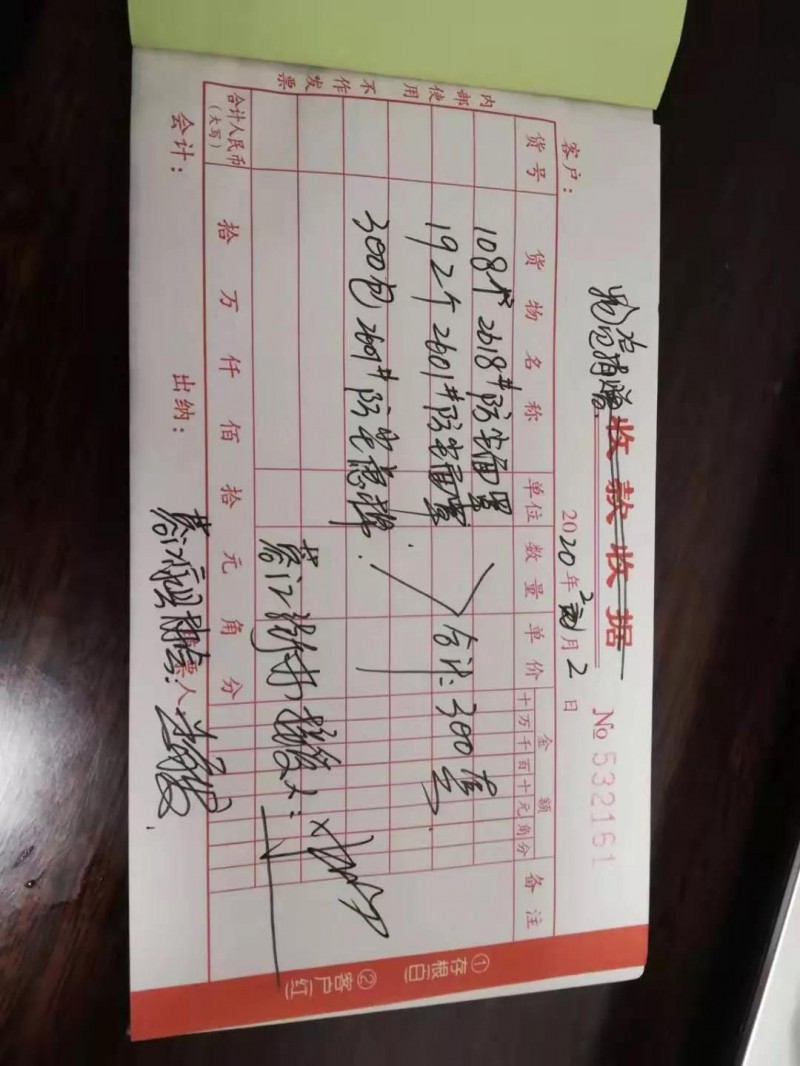 收款收据
No 532161
客户：
2020年2月2日
货号 货物名称 单位 数量 单价 金额 备注
十万千百十元角分
108个 2618#防尘面罩
192个 2601#防尘面罩
合计：300套
300包 2601#防尘
接收人：
合计人民币（大写） 拾 万 仟 佰 拾 元 角 分
会计： 出纳： 票人
内部使用 不作发票
①存根(白) ②客户(红)